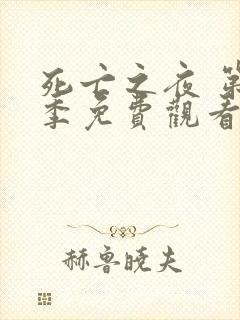 死亡之夜 第
季免費觀看
赫魯曉夫